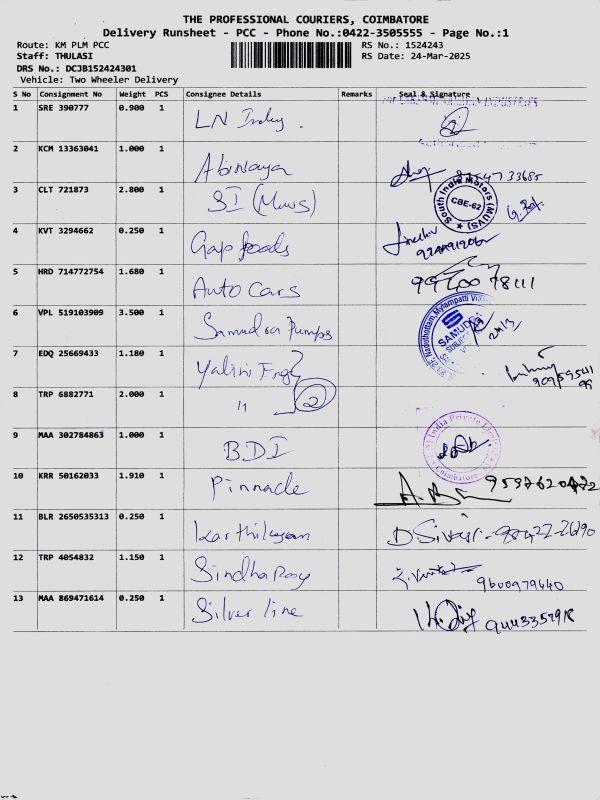 THE PROFESSIONAL COURIERS, COIMBATORE
Delivery Runsheet - PCC - Phone No.:0422-3505555 - Page No.:1
Route: KM PLM PCC
RS No.: 1524243
Staff: THULASI
RS Date: 24-Mar-2025
DRS No.: DCJB152424301
Vehicle: Two Wheeler Delivery
S No Consignment No Weight PCS Consignee Details Remarks Seal & Signature
1 SRE 390777 0.900 1 LN
2 KCM 13363041 1.000 1 Abinaya
3 CLT 721873 2.800 1 SI (Muvs) South India Motors (MUVS) CBE-62
4 KVT 3294662 0.250 1 Gap foods
5 HRD 714772754 1.680 1 Auto Cars 78111
6 VPL 519103909 3.500 1 Samudra Pumps
7 EDQ 25669433 1.180 1 Yalini Engg
8 TRP 6882771 2.000 1 " 2
9 MAA 302784863 1.000 1 BDI India Private Coimbatore
10 KRR 50162033 1.910 1 Pinnacle
11 BLR 2650535313 0.250 1 Karthikeyan
12 TRP 4054832 1.150 1 Sindha Roy 9600979640
13 MAA 869471614 0.250 1 Silver line